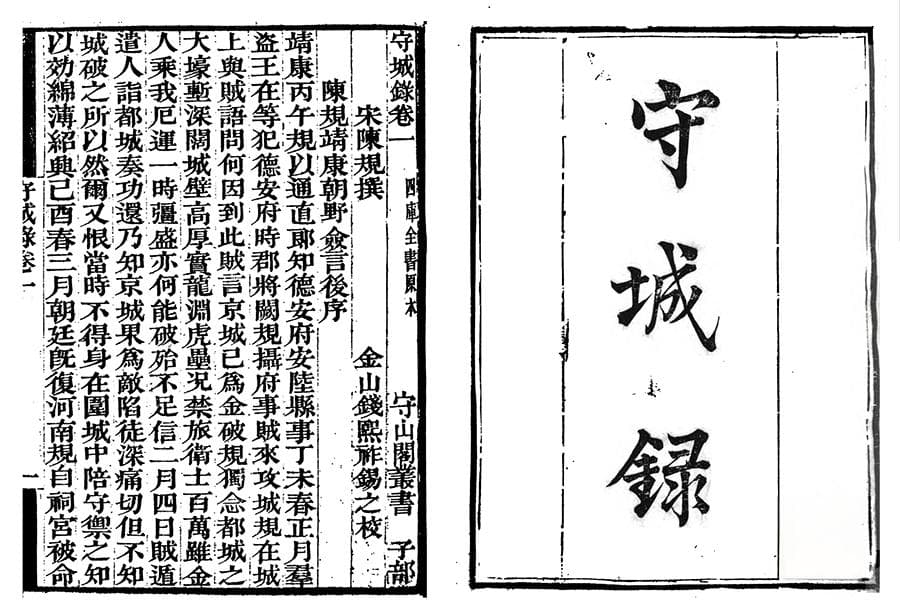 守城錄
守城錄卷一　四庫全書原本　守山閣叢書　子部
宋陳規撰　金山錢熙祚錫之校
陳規靖康朝野僉言後序
靖康丙午規以通直郎知德安府安陸縣事丁未春正月羣
盜王在等犯德安府時郡將闕規攝府事賊來攻城規在城
上與賊語問何因到此賊言京城已爲金破規獨念都城之
大壕塹深闊城壁高厚實龍淵虎壘况禁旅衛士百萬雖金
人乘我厄運一時彊盛亦何能破殆不足信二月四日賊遁
遣人詣都城奏功還乃知京城果爲敵陷徒深痛切但不知
城破之所以然爾又恨當時不得身在圍城中陪守禦之知
以効綿薄紹興己酉春三月朝廷旣復河南規自祠宮被命
守城錄卷一　一